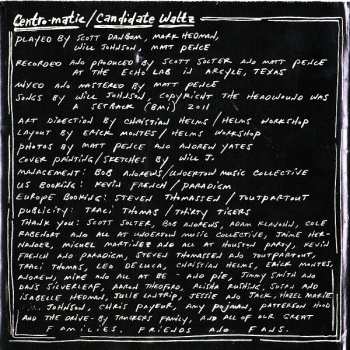 Centro-matic / Candidate Waltz
PLAYED BY SCOTT DANBOM, MARK HEDMAN,
WILL JOHNSON, MATT PENCE
RECORDED AND PRODUCED BY SCOTT SOLTER AND MATT PENCE
AT THE ECHO LAB IN ARGYLE, TEXAS
MIXED AND MASTERED BY MATT PENCE
SONGS BY WILL JOHNSON, COPYRIGHT THE HEADWOUND WAS
A SETBACK (BMI) 2011
ART DIRECTION BY CHRISTIAN HELMS / HELMS WORKSHOP
LAYOUT BY ERICK MONTES / HELMS WORKSHOP
PHOTOS BY MATT PENCE AND ANDREW YATES
COVER PAINTING/SKETCHES BY WILL J.
MANAGEMENT: BOB ANDREWS/UNDERTOW MUSIC COLLECTIVE
US BOOKING: KEVIN FRENCH / PARADIGM
EUROPE BOOKING: STEVEN THOMASSEN / TOUTPARTOUT
PUBLICITY: TRACI THOMAS / THIRTY TIGERS
THANK YOU: SCOTT SOLTER, BOB ANDREWS, ADAM KLAVOHN, COLE
RABENORT AND ALL AT UNDERTOW MUSIC COLLECTIVE, JAIME HER-
NANDEZ, MIGUEL MARTINEZ AND ALL AT HOUSTON PARTY, KEVIN
FRENCH AND PARADIGM, STEVEN THOMASSEN AND TOUTPARTOUT,
TRACI THOMAS, LEO DELUCA, CHRISTIAN HELMS, ERICK MONTES,
ANDREW, MIKE AND ALL AT BE-AND PIE, JIMMY SMITH AND
DANS SILVERLEAF, AARON THEDFORD, ALISHA RUSHING, SUSAN AND
ISABELLE HEDMAN, JULIE LANTRIP, JESSIE AND JACK, HAZEL MARIE
JOHNSON, CHRIS PAVEUR, AMY POJMAN, PATTERSON HOOD
AND THE DRIVE-BY TRUCKERS FAMILY, AND ALL OF OUR GREAT
FAMILIES, FRIENDS AND FANS.